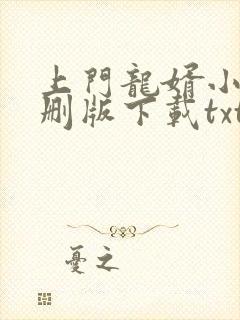 上門龍婿小
刪版下載txt
憂之